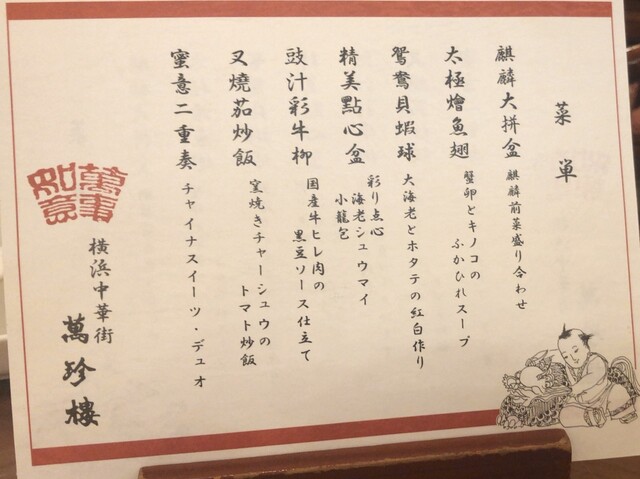 菜単
麒麟大拼盆
麒麟前菜盛り合わせ
太極燴魚翅
蟹卵とキノコの
ふかひれスープ
鴛鴦貝蝦球
大海老とホタテの紅白作り
精美點心盆
彩り点心
海老シュウマイ
小籠包
豉汁彩牛柳
国産牛ヒレ肉の
黒豆ソース仕立て
叉燒茄炒飯
窯焼きチャーシュウの
トマト炒飯
蜜意二重奏
チャイナスイーツ・デュオ
萬事
如意
横浜中華街
萬珍樓